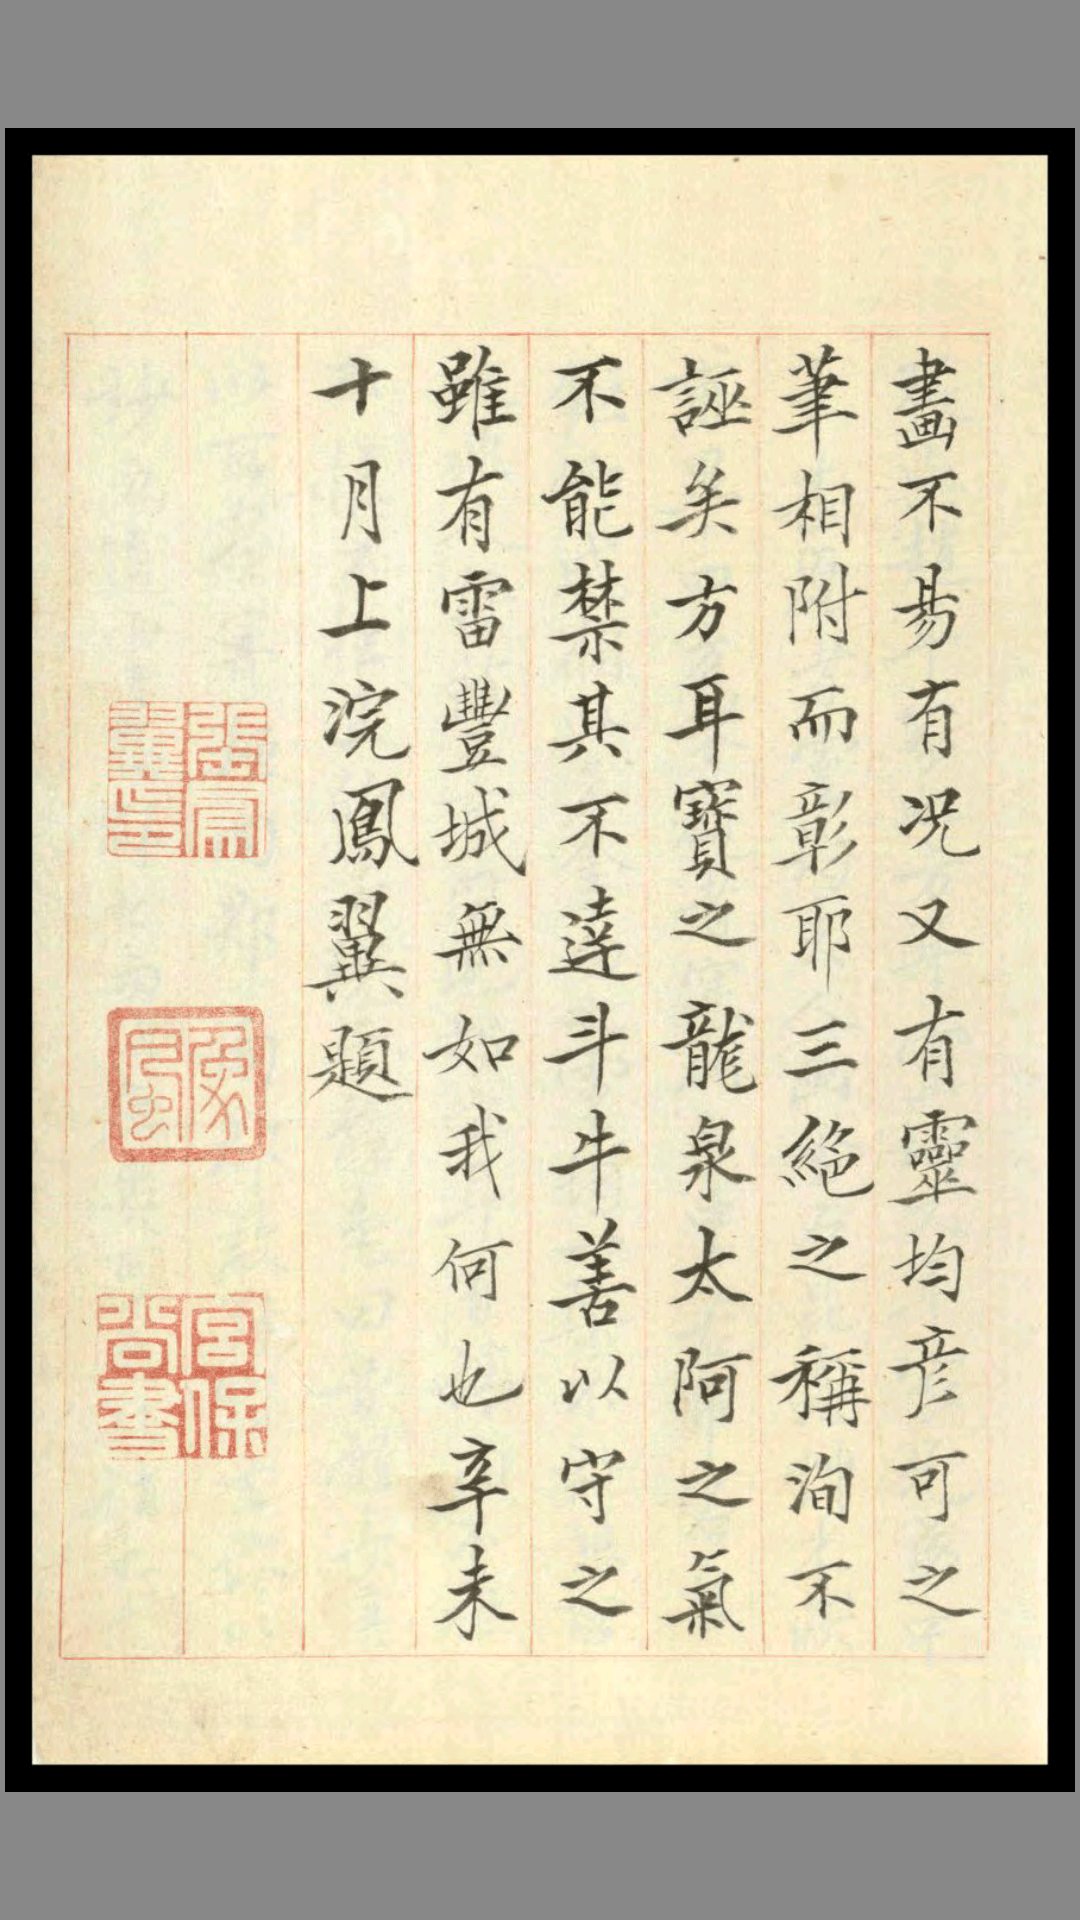 畫不易有况又有靈均彦可之
筆相附而彰耶三絶之稱洵不
誣矣方耳寶之龍泉太阿之氣
不能禁其不達斗牛善以守之
雖有雷豐城無如我何也辛未
十月上浣鳳翼題
宮保
尚書